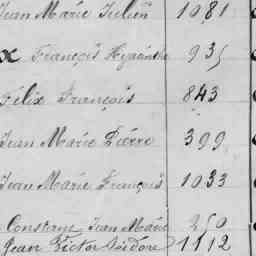 Jean Marie Julien 1081
x François Hyacinthe 935
Félix François 843
Jean Marie Pierre 399
Jean Marie François 1033
Constant Jean Marie 250
Jean Victor Isidore 1112